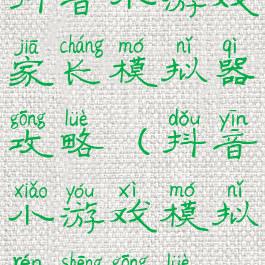 音 游戏
jiā cháng mó nǐ qì
家长模拟器
gōng lüè dǒu yīn
攻略（抖音
xiǎo yóu xì mó nǐ
小游戏模拟
rén shēng gōng lüè